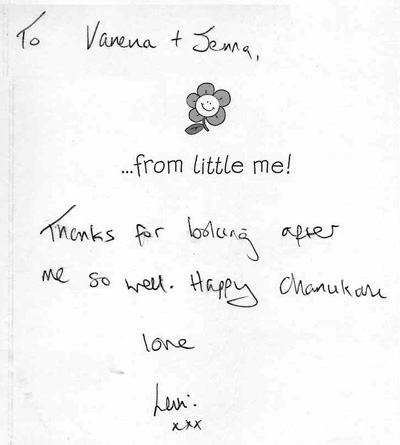 To Vanena + Jenna,
...from little me!
Thanks for looking after
me so well. Happy Chanukah
love
Levi.
xxx